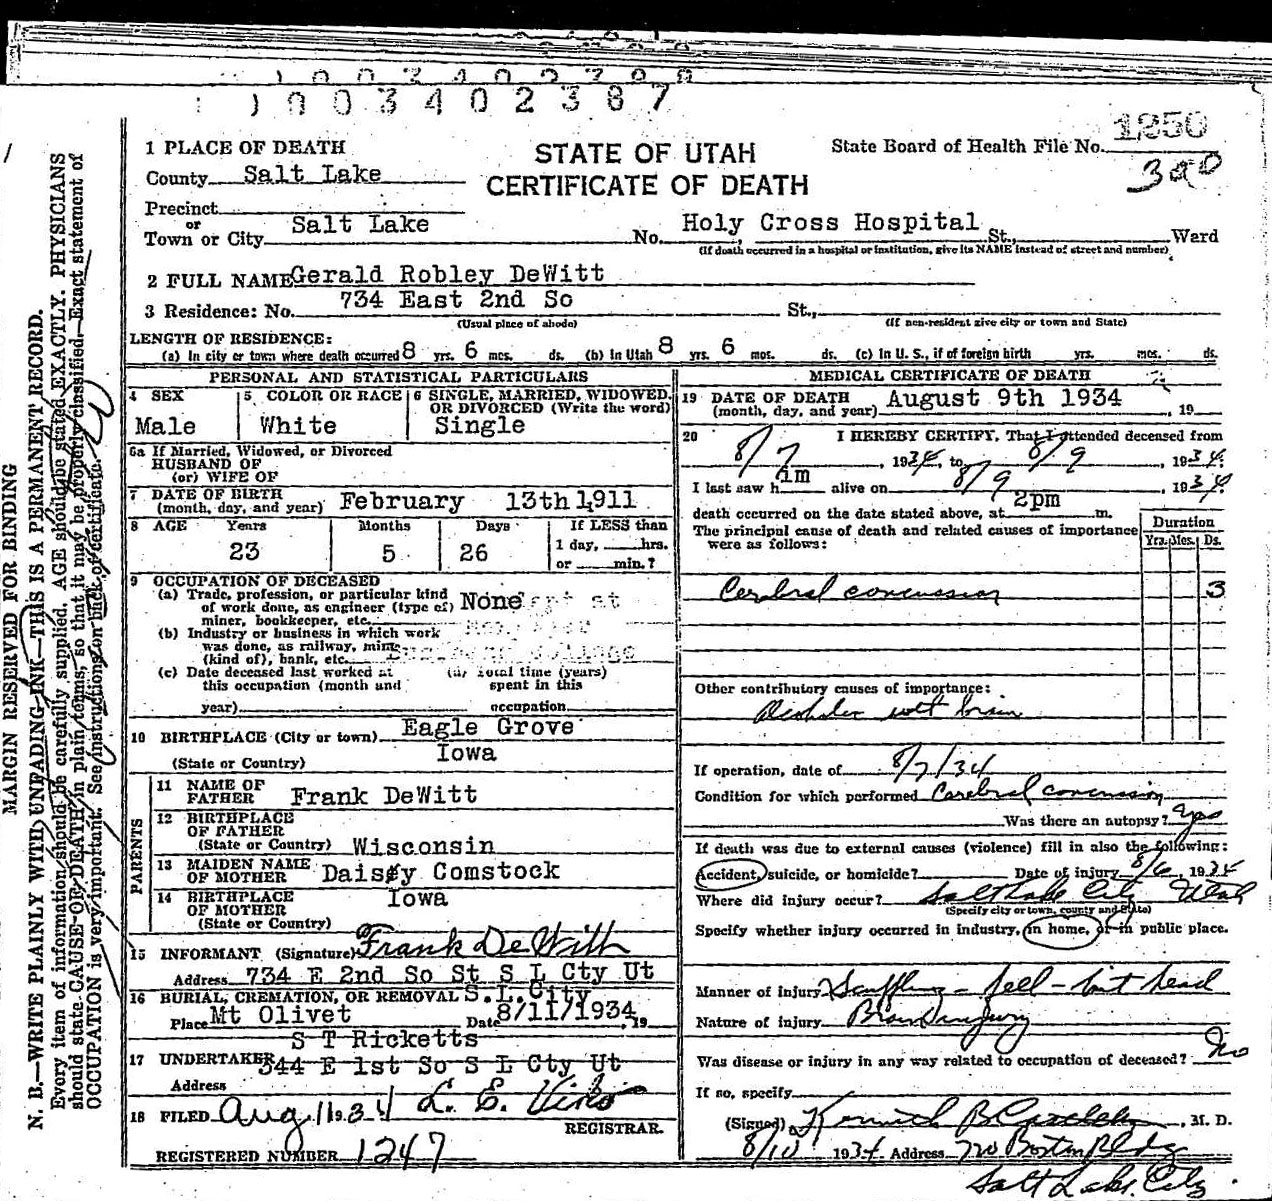 1003402387
1 PLACE OF DEATH
County Salt Lake
STATE OF UTAH
CERTIFICATE OF DEATH
State Board of Health File No. 1250
Precinct
or
Town or City Salt Lake
No. Holy Cross Hospital St., Ward
(If death occurred in a hospital or institution, give its NAME instead of street and number)
2 FULL NAME Gerald Robley DeWitt
3 Residence: No. 734 East 2nd So St.,
(Usual place of abode) (If non-resident give city or town and State)
LENGTH OF RESIDENCE:
(a) In city or town where death occurred 8 yrs. 6 mos. ds. (b) In Utah 8 yrs. 6 mos. ds. (c) In U. S., if of foreign birth yrs. mos. ds.
PERSONAL AND STATISTICAL PARTICULARS
4 SEX
Male
5 COLOR OR RACE
White
6 SINGLE, MARRIED, WIDOWED,
OR DIVORCED (Write the word)
Single
6a If Married, Widowed, or Divorced
HUSBAND OF
(or) WIFE OF
7 DATE OF BIRTH
(month, day, and year) February 13th 1911
8 AGE Years Months Days If LESS than
23 5 26 1 day, hrs.
or min.?
9 OCCUPATION OF DECEASED
(a) Trade, profession, or particular kind
of work done, as engineer (type of) None
miner, bookkeeper, etc.
(b) Industry or business in which work
was done, as railway, mine
(kind of), bank, etc.
(c) Date deceased last worked at
this occupation (month and
year)
(d) Total time (years)
spent in this
occupation
10 BIRTHPLACE (City or town) Eagle Grove
(State or Country) Iowa
PARENTS
11 NAME OF
FATHER Frank DeWitt
12 BIRTHPLACE
OF FATHER
(State or Country) Wisconsin
13 MAIDEN NAME
OF MOTHER Daisy Comstock
14 BIRTHPLACE Iowa
OF MOTHER
(State or Country)
15 INFORMANT (Signature) Frank DeWitt
Address 734 E 2nd So St S L Cty Ut
16 BURIAL, CREMATION, OR REMOVAL S.L.City
Place Mt Olivet Date 8/11/1934, 19
S T Ricketts
17 UNDERTAKER 344 E 1st So S L Cty Ut
Address
18 FILED Aug 11 1934
REGISTRAR.
REGISTERED NUMBER 1247
MEDICAL CERTIFICATE OF DEATH
19 DATE OF DEATH August 9th 1934
(month, day, and year) , 19
20 I HEREBY CERTIFY, That I attended deceased from
8/7, 1934, to 8/9, 1934.
I last saw him alive on 8/9 1934
death occurred on the date stated above, at 2pm m.
The principal cause of death and related causes of importance
were as follows:
Duration
Yrs. Mos. Ds.
Cerebral concussion 3
Other contributory causes of importance:
brain
If operation, date of 8/7/34
Condition for which performed Cerebral concussion
Was there an autopsy? Yes
If death was due to external causes (violence) fill in also the following:
Accident, suicide, or homicide? Date of injury 8/6, 1934
Where did injury occur? Salt Lake City Utah
(Specify city or town, county and State)
Specify whether injury occurred in industry, in home, or in public place.
Manner of injury Scuffling - fell - hit head
Nature of injury Brain injury
Was disease or injury in any way related to occupation of deceased? No
If so, specify
(Signed) , M. D.
8/10 1934 Address 720 Boston Bldg
Salt Lake City.
MARGIN RESERVED FOR BINDING
N. B.—WRITE PLAINLY WITH UNFADING INK—THIS IS A PERMANENT RECORD.
Every item of information should be carefully supplied. AGE should be stated EXACTLY. PHYSICIANS
should state CAUSE OF DEATH in plain terms, so that it may be properly classified. Exact statement of
OCCUPATION is very important. See instructions on back of certificate.